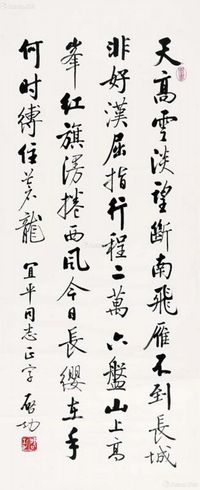 天高雲淡望斷南飛雁不到長城
非好漢屈指行程二萬六盤山上高
峯紅旗漫捲西风今日長纓在手
何时縛住蒼龍 宜平同志正字 啓功